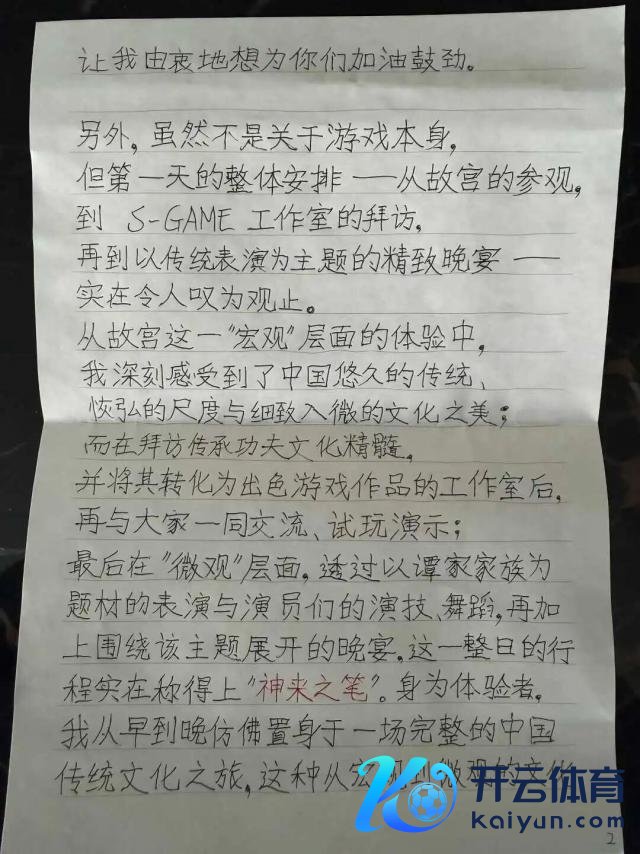 让我由衷地想为你们加油鼓劲。
另外，虽然不是关于游戏本身，
但第一天的整体安排——从故宫的参观，
到 S-GAME 工作室的拜访，
再到以传统表演为主题的精致晚宴——
实在令人叹为观止。
从故宫这一“宏观”层面的体验中，
我深刻感受到了中国悠久的传统、
恢弘的尺度与细致入微的文化之美；
而在拜访传承功夫文化精髓，
并将其转化为出色游戏作品的工作室后，
再与大家一同交流、试玩演示；
最后在“微观”层面，透过以谭家家族为
题材的表演与演员们的演技、舞蹈，再加
上围绕该主题展开的晚宴，这一整日的行
程实在称得上“神来之笔”。身为体验者，
我从早到晚仿佛置身于一场完整的中国
传统文化之旅，这种从宏观到微观的文化
开云体育
kaiyun.com
2